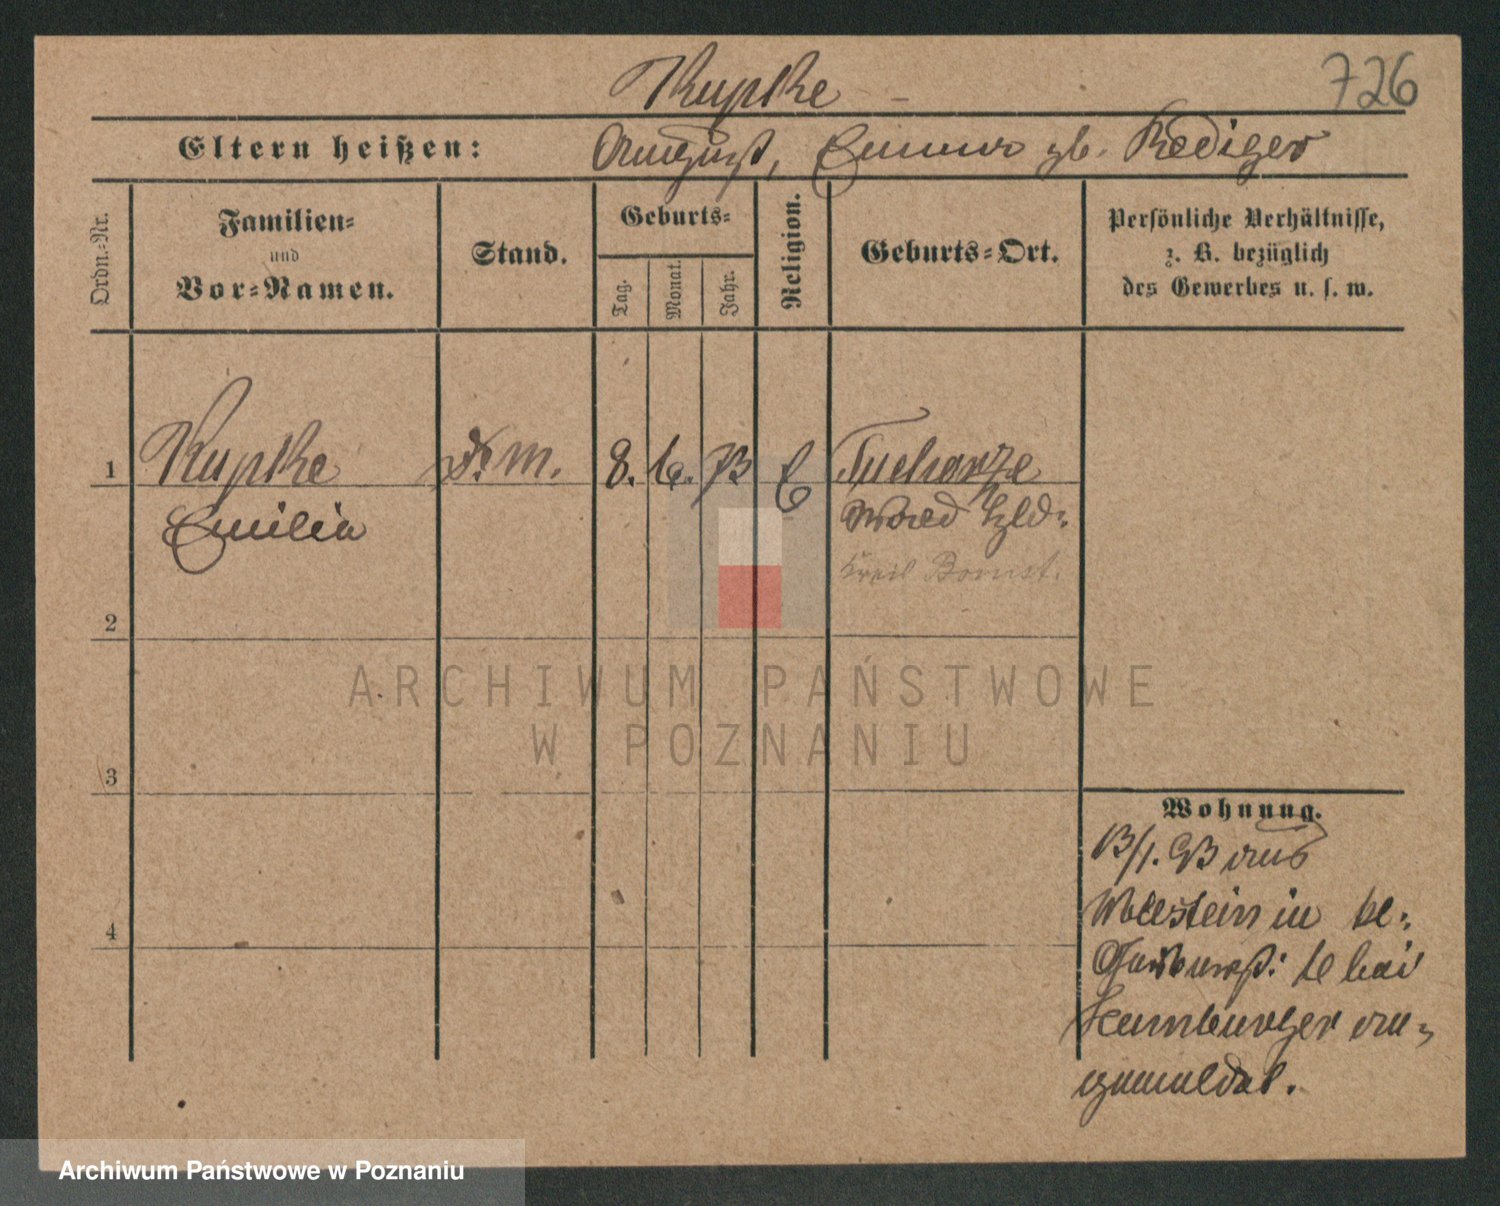 Kupke
726
Eltern heißen: August, Emma gb. Rediger
Ordn.-Nr.
Familien-
und
Vor-Namen.
Stand.
Geburts-
Tag.
Monat.
Jahr.
Religion.
Geburts-Ort.
Persönliche Verhältnisse,
z. B. bezüglich
des Gewerbes u. s. w.
1
Kupke
Emilia
D. M.
8. 6. 73
E
Tucharze
Kreis Bomst.
2
3
4
Wohnung.
aus
Wollstein in
bei
Hamburger an-
gemeldet.
ARCHIWUM PAŃSTWOWE
W POZNANIU
Archiwum Państwowe w Poznaniu